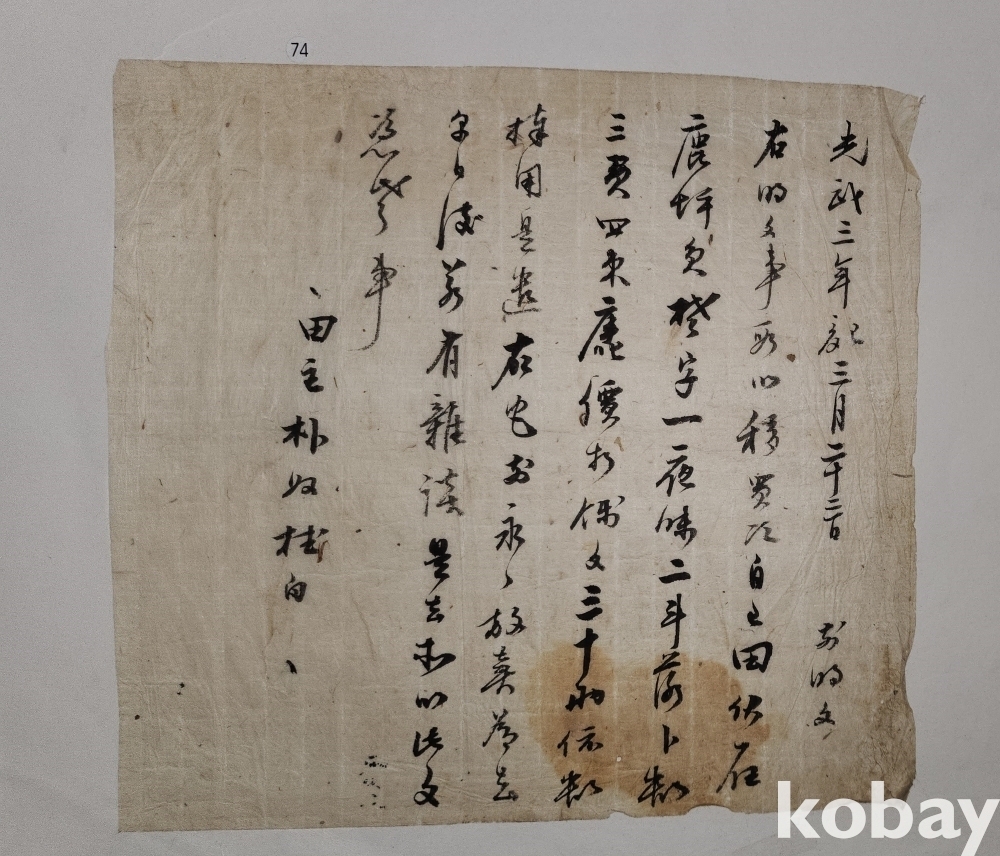 74
光武三年記三月二十三日 前明文
右明文事段以移買次自己田伏在
鹿坪員楚字一夜味二斗落卜數
三負四束庫價折価文三十兩依數
捧用是遣右宅前永永放賣爲去
乎日後若有雜談是去等以此文
憑考事
田主 朴奴桂白
kobay